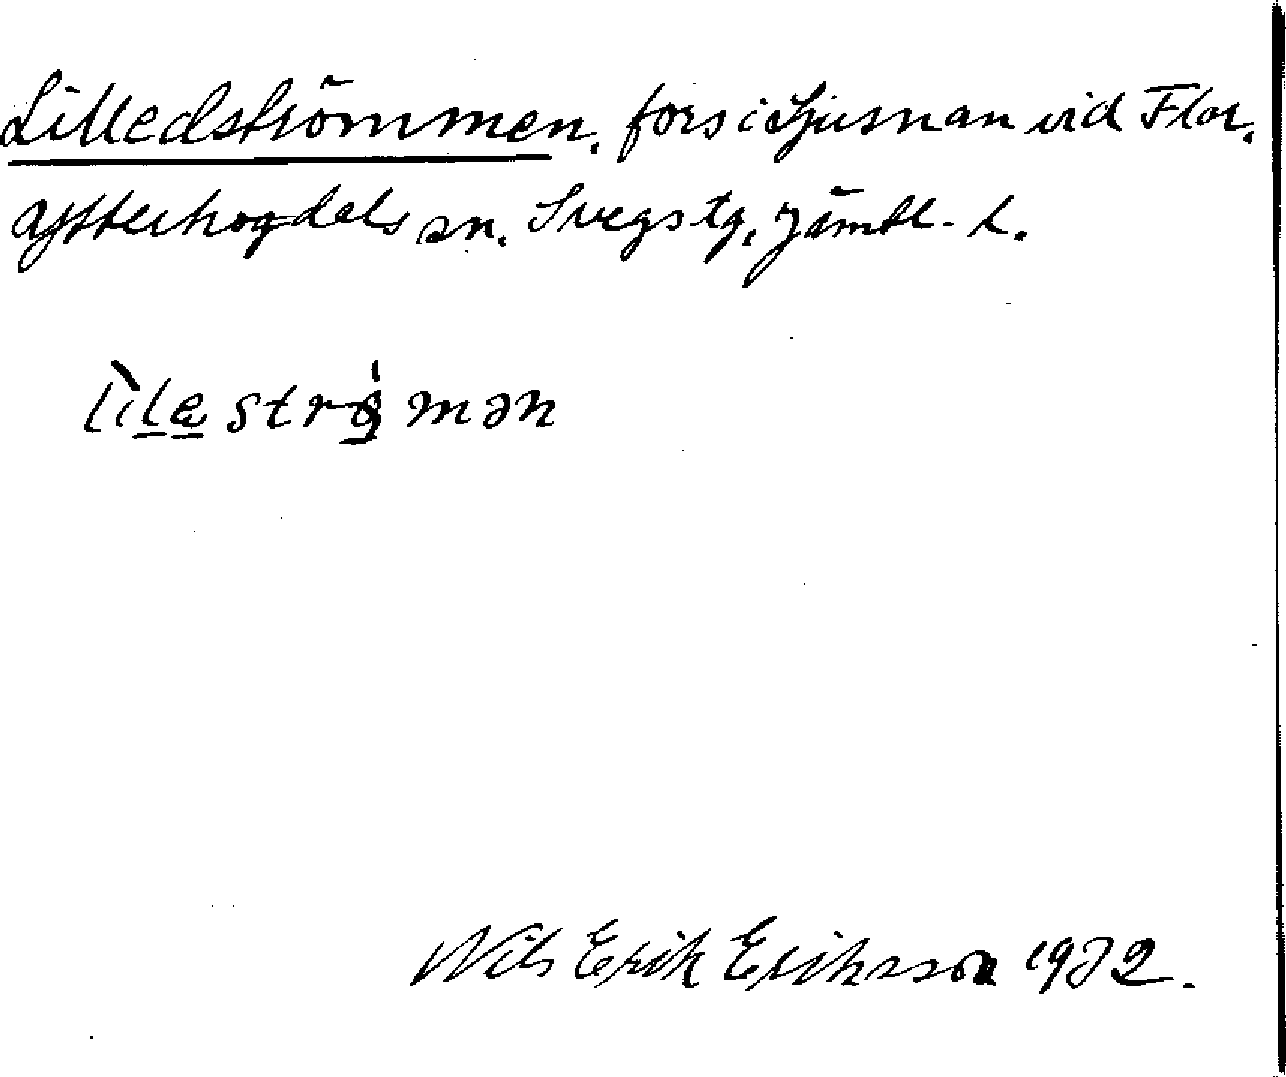 Lilledströmmen, fors i Ljusnan vid Flor,
Ytterhogdals sn. Svegs tg, Jämtl. L.
lìlæ strǿmən
Nils Erik Eriksson 1932.